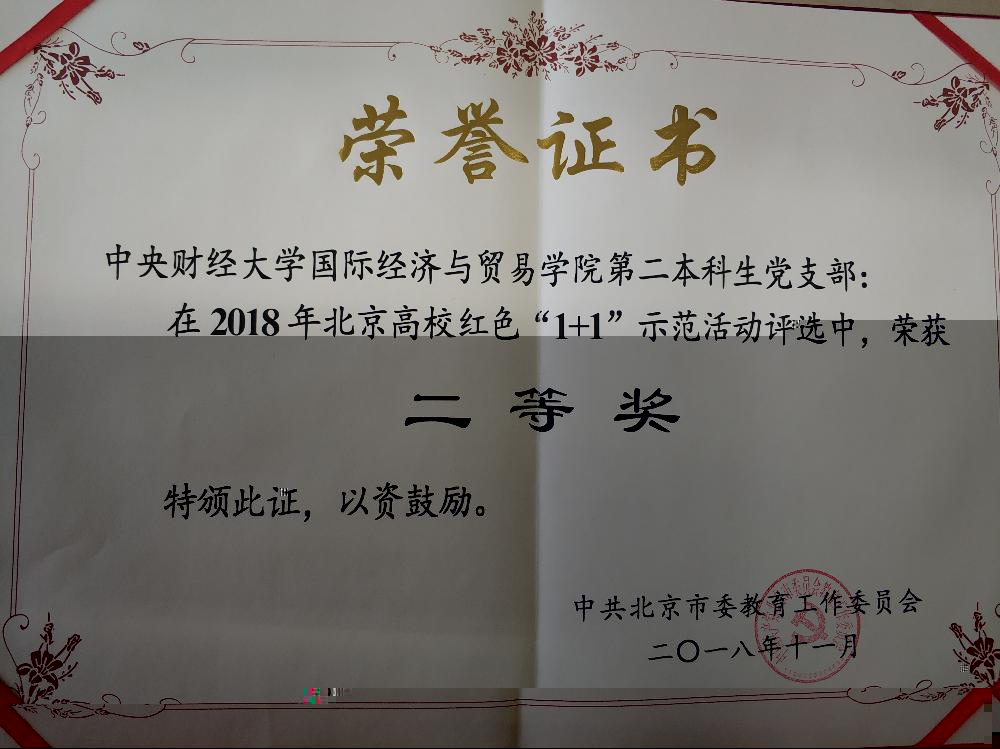 荣誉证书
中央财经大学国际经济与贸易学院第二本科生党支部：
在2018年北京高校红色“1+1”示范活动评选中，荣获
二等奖
特颁此证，以资鼓励。
中共北京市委教育工作委员会
二〇一八年十一月